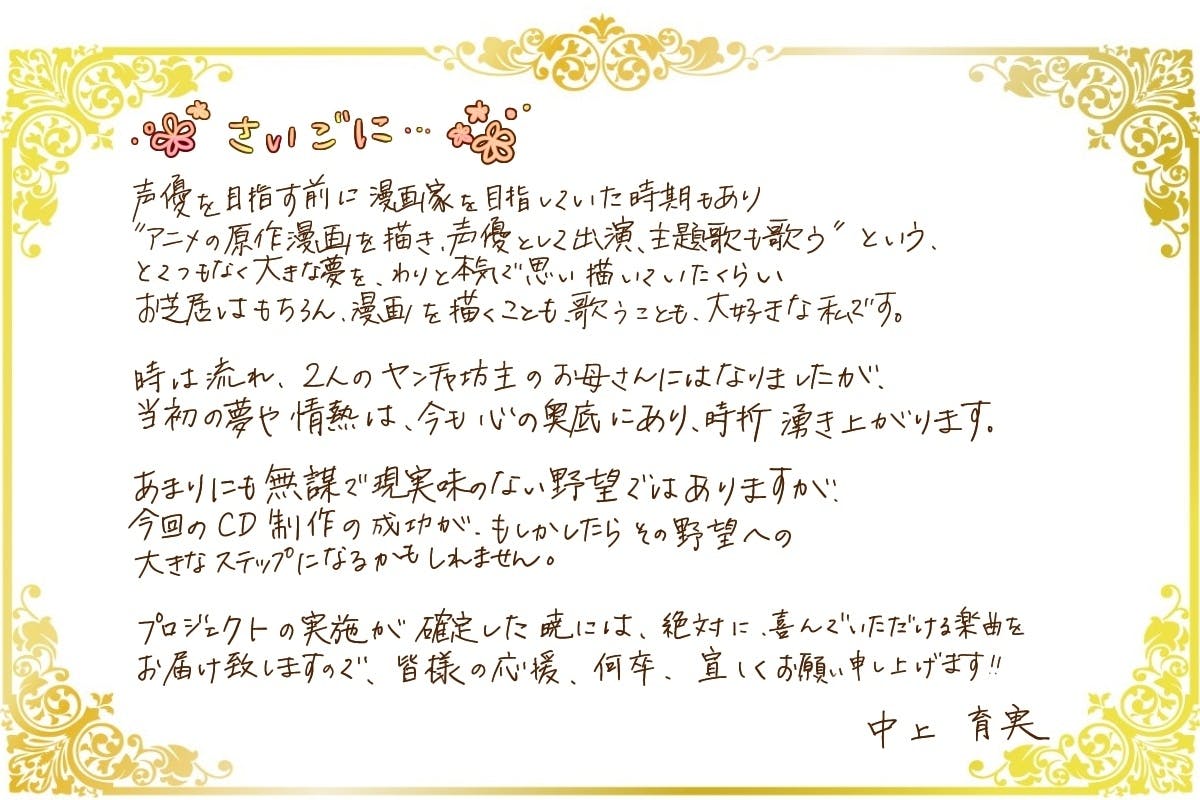 さいごに…
声優を目指す前に漫画家を目指していた時期もあり
"アニメの原作漫画を描き、声優として出演、主題歌も歌う" という、
とてつもなく大きな夢を、わりと本気で思い描いていたくらい
お芝居はもちろん、漫画を描くことも、歌うことも、大好きな私です。
時は流れ、2人のヤンチャ坊主のお母さんにはなりましたが、
当初の夢や情熱は、今も心の奥底にあり、時折湧き上がります。
あまりにも無謀で現実味のない野望ではありますが、
今回のCD制作の成功が、もしかしたらその野望への
大きなステップになるかもしれません。
プロジェクトの実施が確定した暁には、絶対に、喜んでいただける楽曲を
お届け致しますので、皆様の応援、何卒、宜しくお願い申し上げます!!
中上 育実